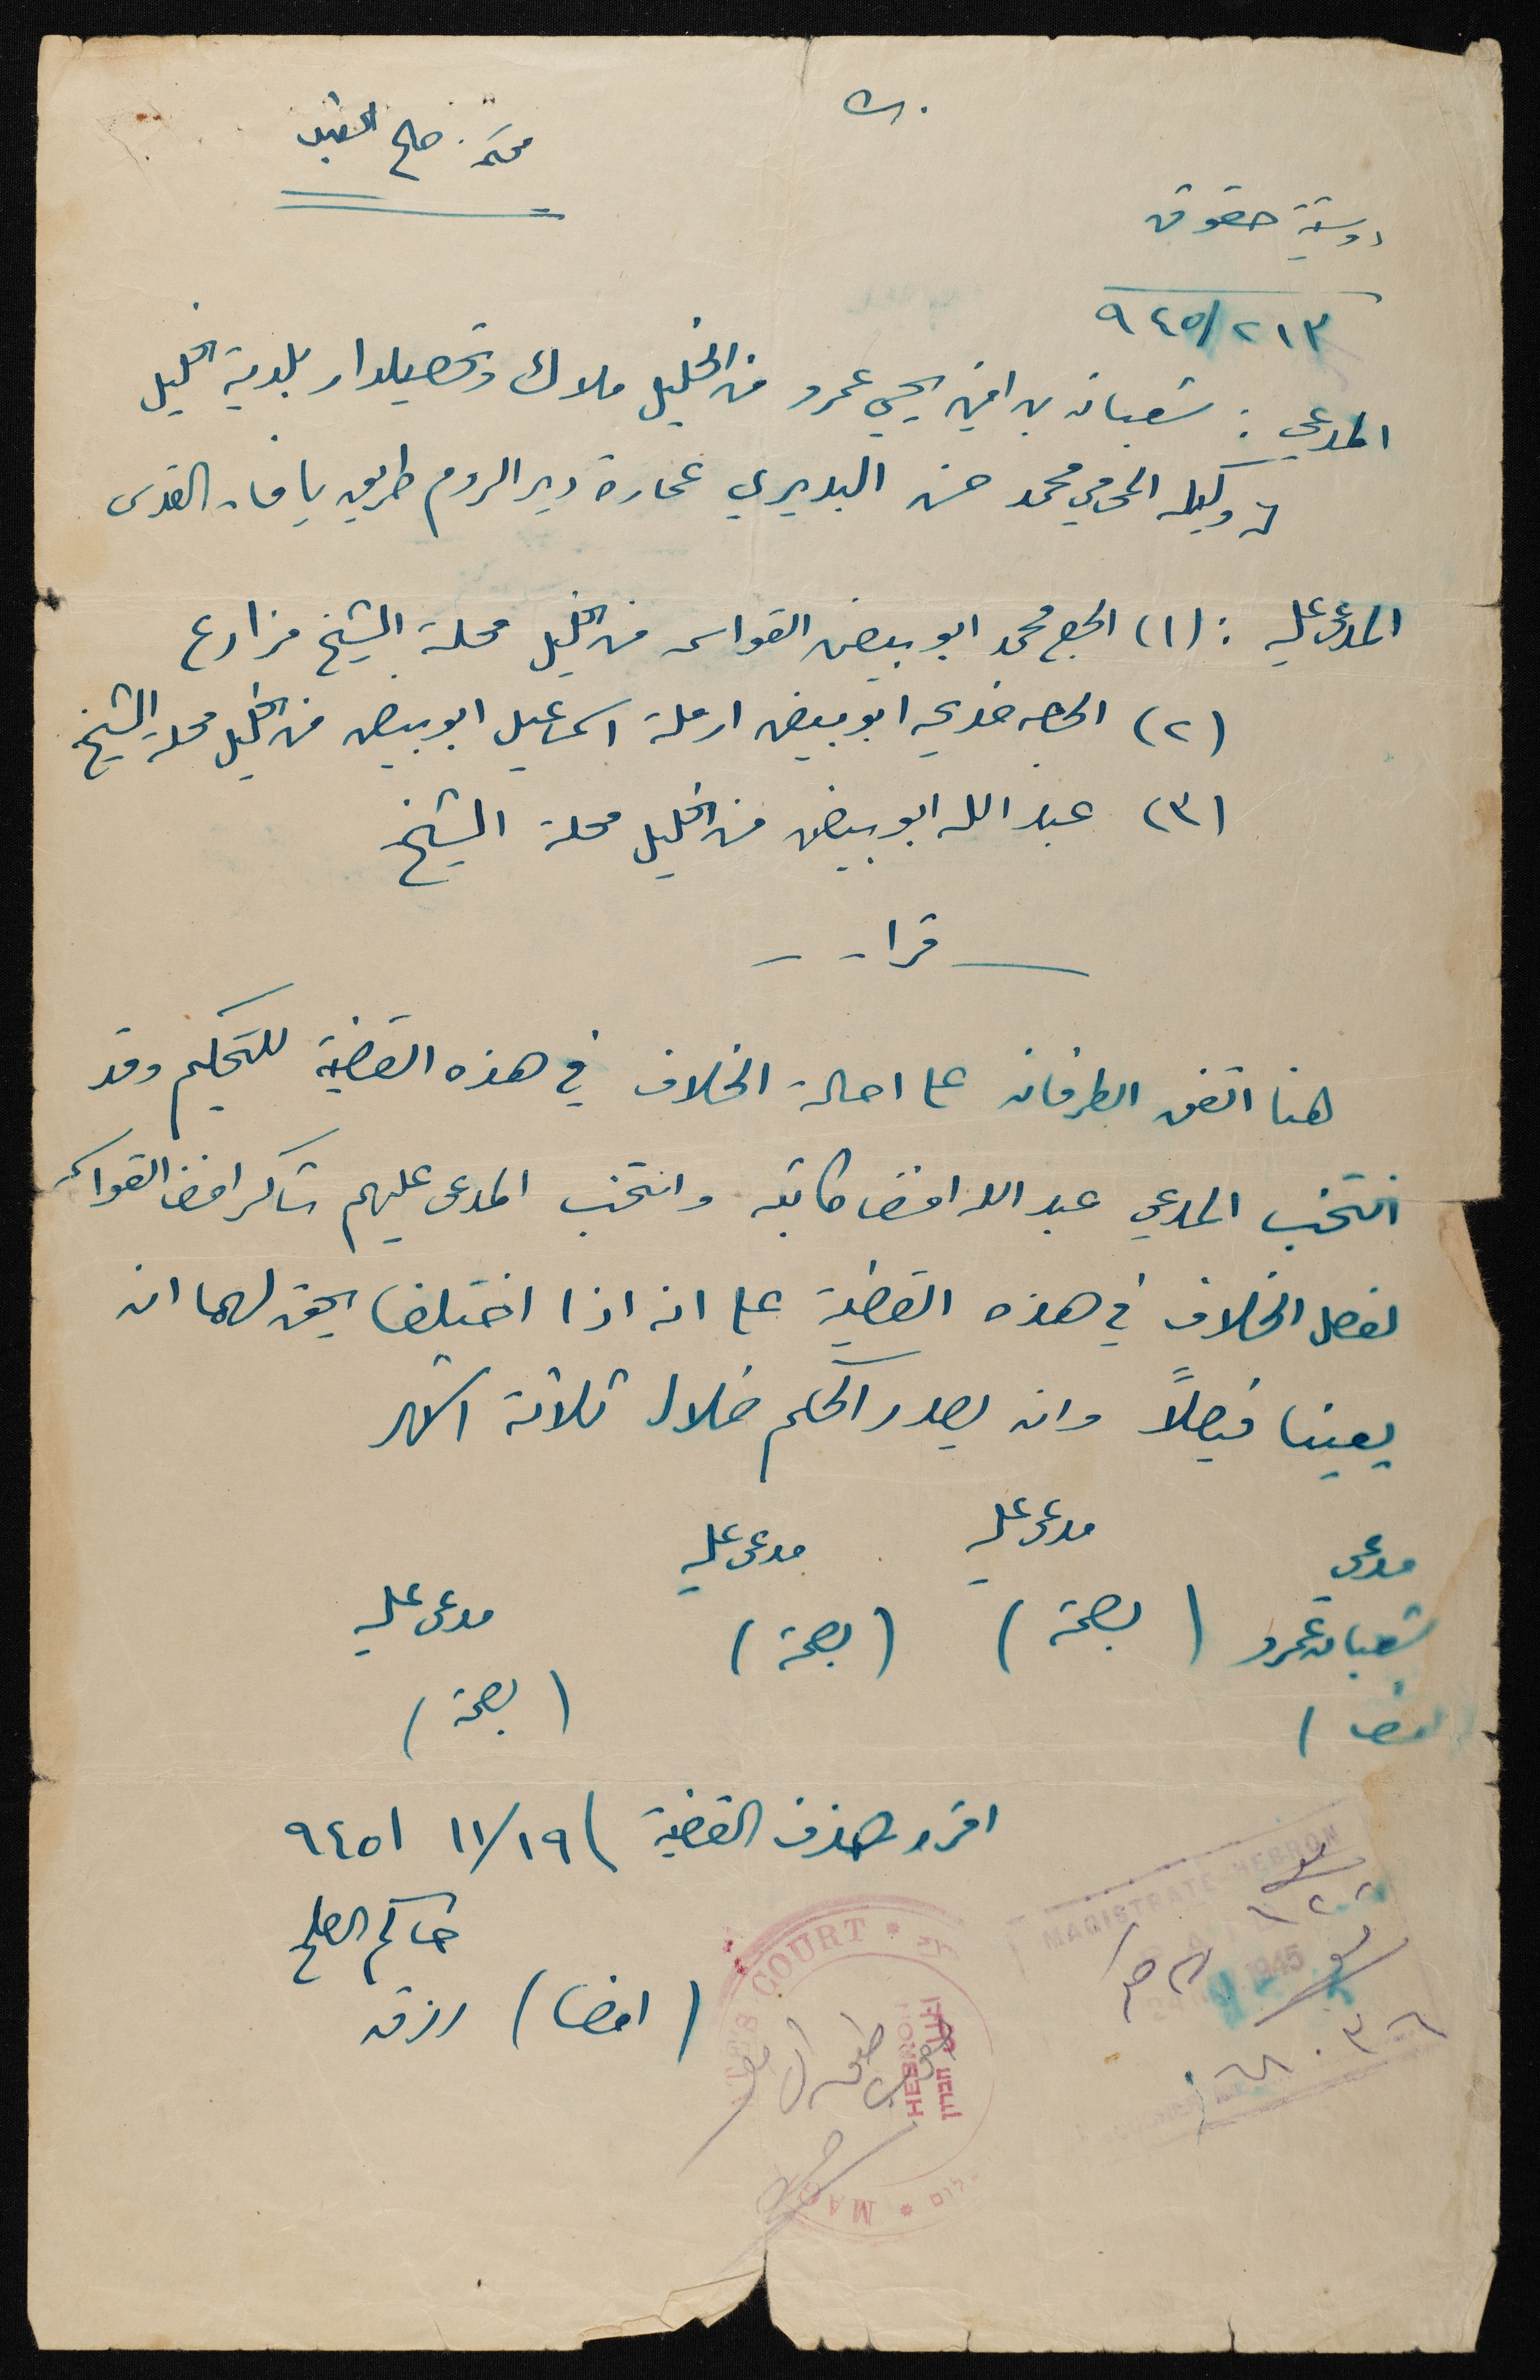 محكمة صلح الخليل
دوسية حقوق
٩٤٥/٢١٣
المدعي : شعبان بن امين يحيى عمرو من الخليل ملاك وتحصيلدار بلدية الخليل
وكيله المحامي محمد حسن البديري عمارة دير الروم طريق يافا القدس
المدعى عليه : (١) الحج محمد ابو بيض القواسمه من الخليل محلة الشيخ مزارع
(٢) الحجه خديجه ابو بيض ارملة اسماعيل ابو بيض من الخليل محلة الشيخ
(٣) عبد الله ابو بيض من الخليل محلة الشيخ
قرار
هنا اتفق الطرفان على احالة الخلاف في هذه القضية للتحكيم وقد
انتخب المدعي عبد الله افندي وانتخب المدعى عليهم شاكر افندي القواسمه
لفصل الخلاف في هذه القضية على انه اذا اختلفا يحق لهما ان
يعينا فيصلاً وان يصدر الحكم خلال ثلاثة اشهر
مدعي مدعى عليه مدعى عليه مدعى عليه
شعبان عمرو (بصمة) (بصمة) (بصمة)
(امضا)
اقرر شطب القضية ١١/١٩ ٩٤٥
حاكم الصلح
(امضا) رزق
MAGISTRATE HEBRON
1945
COURT
HEBRON